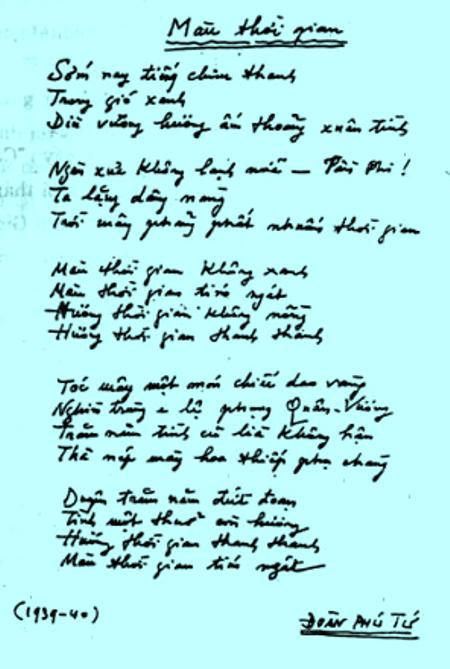 Màu thời gian
Sớm nay tiếng chim thanh
Trong gió xanh
Dìu vương hương ấm thoảng xuân tình
Ngàn xưa không lạnh nữa — Tần Phi!
Ta lặng dâng nàng
Trời mây phảng phất nhuốm thời gian
Màu thời gian không xanh
Màu thời gian tím ngát
Hương thời gian không nồng
Hương thời gian thanh thanh
Tóc mây một món chiếc dao vàng
Nghìn trùng e lệ phụng Quân-Vương
Trăm năm tình cũ lìa không hận
Thà nép mày hoa thiếp phụ chàng
Duyên trăm năm đứt đoạn
Tình một thuở còn hương
Hương thời gian thanh thanh
Màu thời gian tím ngát
(1939-40)
ĐOÀN PHÚ TỨ